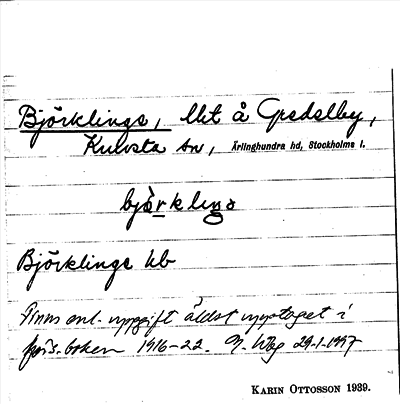 Björklinge, lht å Gredelby,
Knivsta sn, Ärlinghundra hd, Stockholms l.
björkliŋɢ
Björklinge kb
Finns enl. uppgift äldst upptaget i
förs.boken 1916-22. 29-1-1997
KARIN OTTOSSON 1939.